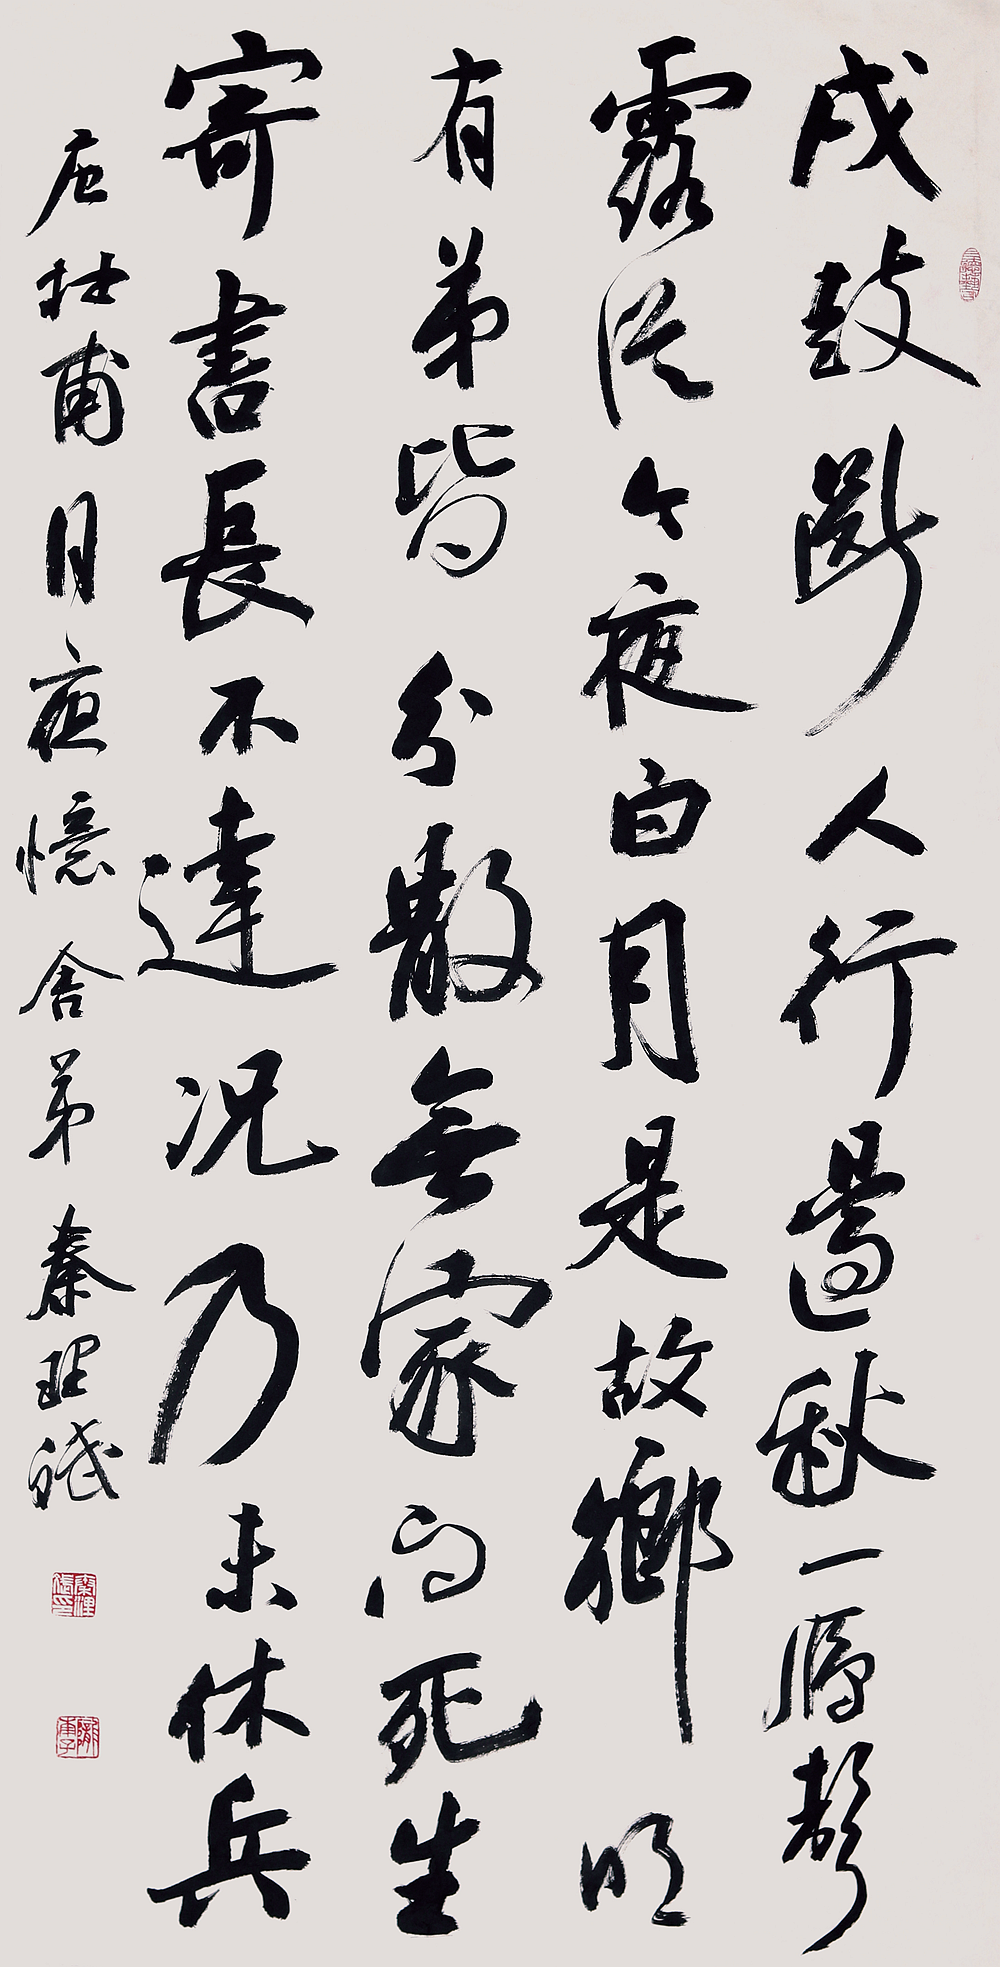 戍鼓斷人行邊秋一鴈聲
露從今夜白月是故鄉明
有弟皆分散無家問死生
寄書長不達况乃未休兵
唐杜甫月夜憶舍弟 秦理斌